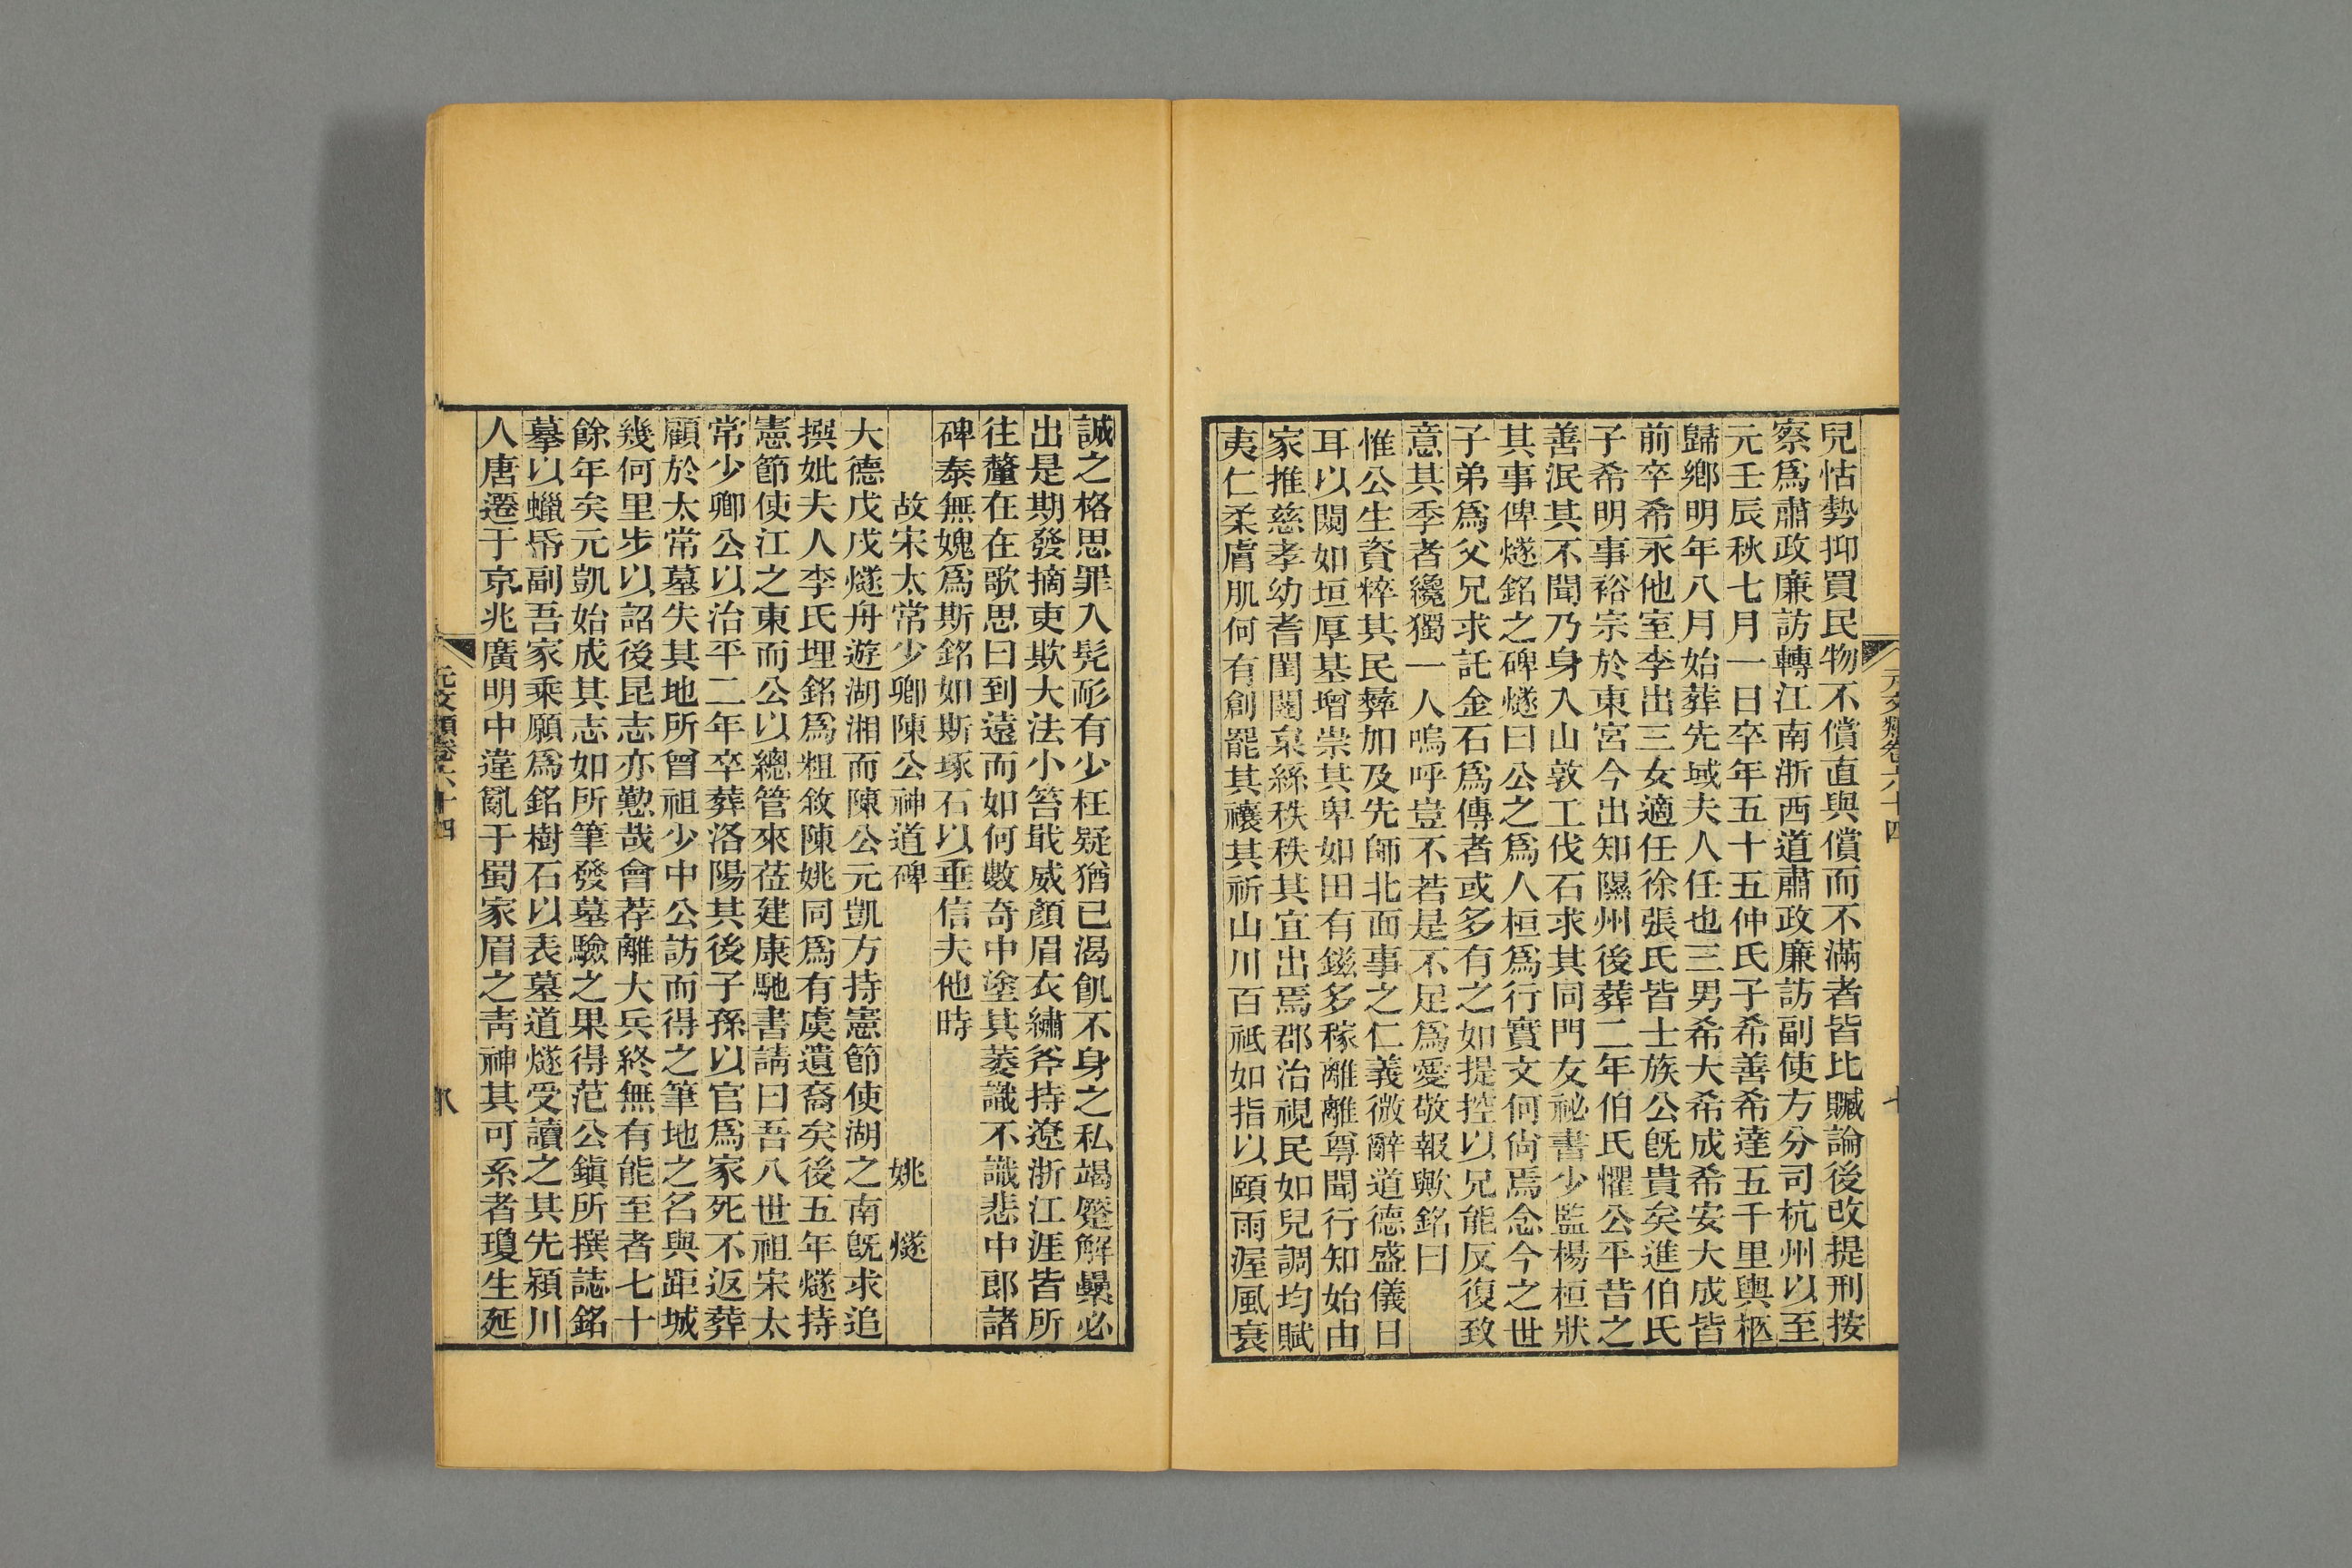 元文類卷六十四
兒怙勢抑買民物不償直與償而不滿者皆比贓論後改提刑按
察爲肅政廉訪轉江南浙西道肅政廉訪副使方分司杭州以至
元壬辰秋七月一日卒年五十五仲氏子希善希達五千里輿柩
歸鄕明年八月始葬先域夫人任也三男希大希成希安大成皆
前卒希永他室李出三女適任徐張氏皆士族公旣貴矣進伯氏
子希明事裕宗於東宮今出知隰州後葬二年伯氏懼公平昔之
善泯其不聞乃身入山敦工伐石求其同門友祕書少監楊桓狀
其事俾燧銘之碑燧曰公之爲人桓爲行實文何尙焉念今之世
子弟爲父兄求託金石爲傳者或多有之如提控以兄能反復致
意其季者纔獨一人嗚呼豈不若是不足爲愛敬報歟銘曰
惟公生資粹其民彝加及先師北面事之仁義微辭道德盛儀日
耳以閎如垣厚基增崇其卑如田有鎡多稼離離尊聞行知始由
家推慈孝幼耆閨闥枲絲秩秩其宜出焉郡治視民如兒調均賦
夷仁柔膚肌何有創罷其禳其祈山川百祗如指以頤雨渥風衰
誠之格思罪入髡耏有少枉疑猶已渴飢不身之私竭蹷解纍必
出是期發摘吏欺大法小笞戢威顏眉衣繡斧持遼浙江涯皆所
往釐在在歌思曰到遠而如何數奇中塗其萎識不識悲中郞諸
碑泰無媿爲斯銘如斯琢石以垂信夫他時
故宋太常少卿陳公神道碑 姚燧
大德戊戌燧舟遊湖湘而陳公元凱方持憲節使湖之南旣求追
撰妣夫人李氏埋銘爲粗敘陳姚同爲有虞遺裔矣後五年燧持
憲節使江之東而公以總管來莅建康馳書請曰吾八世祖宋太
常少卿公以治平二年卒葬洛陽其後子孫以官爲家死不返葬
顧於太常墓失其地所曾祖少中公訪而得之筆地之名與距城
幾何里步以詔後昆志亦懃哉會荐離大兵終無有能至者七十
餘年矣元凱始成其志如所筆發墓驗之果得范公鎭所撰誌銘
摹以蠟㡙副吾家乘願爲銘樹石以表墓道燧受讀之其先潁川
人唐遷于京兆廣明中違亂于蜀家眉之靑神其可系者瓊生延
元文類卷六十四 八